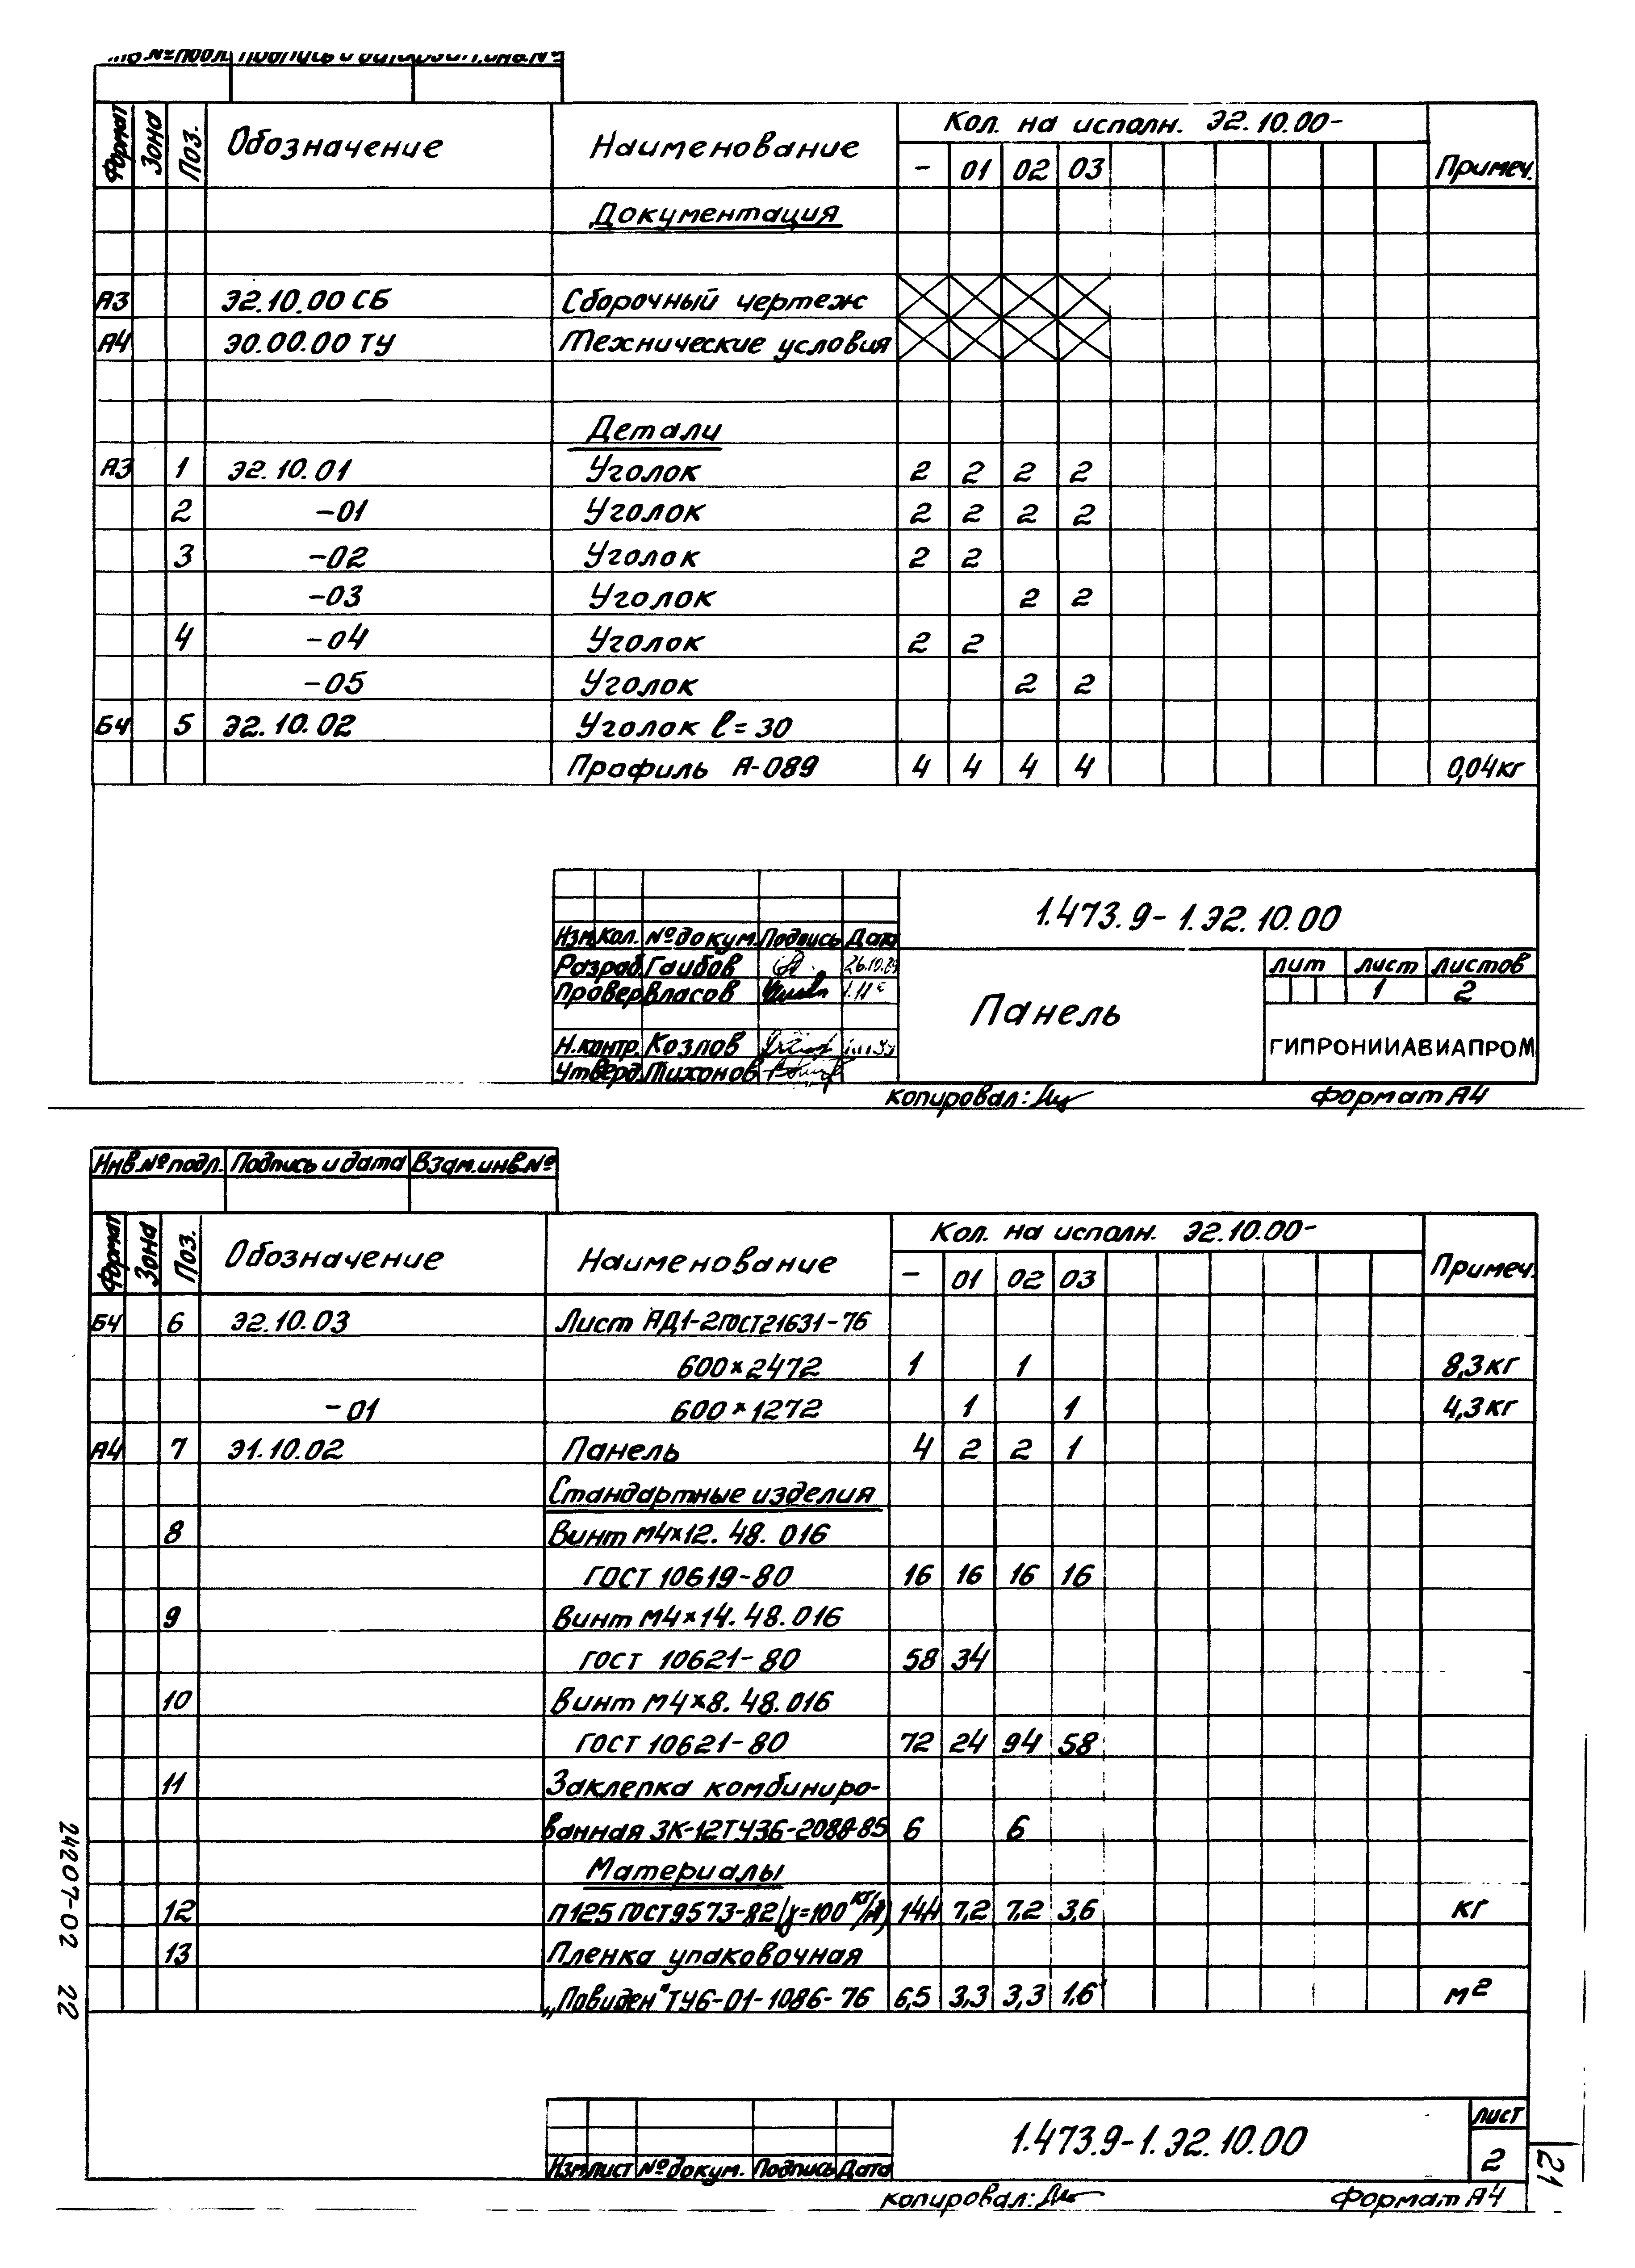 Формат Зона Поз. Обозначение Наименование Кол. на исполн. Э2.10.00- Примеч.
- 01 02 03
Документация
А3 Э2.10.00 СБ Сборочный чертеж
А4 Э0.00.00 ТУ Технические условия
Детали
А3 1 Э2.10.01 Уголок 2 2 2 2
2 -01 Уголок 2 2 2 2
3 -02 Уголок 2 2
-03 Уголок 2 2
4 -04 Уголок 2 2
-05 Уголок 2 2
Б4 5 Э2.10.02 Уголок ℓ=30
Профиль А-089 4 4 4 4 0,04кг
1.473.9-1.Э2.10.00
Изм. Кол. № докум. Подпись Дата
Разраб. Гаибов 26.10.89
Провер. Власов
Н.контр. Козлов
Утверд. Тихонов
Панель
лит лист листов
1 2
ГИПРОНИИАВИАПРОМ
копировал: Формат А4
Инв.№ подл. Подпись и дата Взам.инв.№
Формат Зона Поз. Обозначение Наименование Кол. на исполн. Э2.10.00- Примеч.
- 01 02 03
Б4 6 Э2.10.03 Лист АД1-2ГОСТ21631-76
600×2472 1 1 8,3кг
-01 600×1272 1 1 4,3кг
А4 7 Э1.10.02 Панель 4 2 2 1
Стандартные изделия
8 Винт М4×12.48.016
ГОСТ 10619-80 16 16 16 16
9 Винт М4×14.48.016
ГОСТ 10621-80 58 34
10 Винт М4×8.48.016
ГОСТ 10621-80 72 24 94 58
11 Заклепка комбиниро-
ванная ЗК-12ТУ36-2088-85 6 6
Материалы
12 П125 ГОСТ9573-82(γ=100кг/м³) 14,4 7,2 7,2 3,6 кг
13 Пленка упаковочная
„Повиден"ТУ6-01-1086-76 6,5 3,3 3,3 1,6 м²
24207-02 22
1.473.9-1.Э2.10.00
лист
2
Изм. лист № докум. Подпись Дата
копировал: Формат А4
21